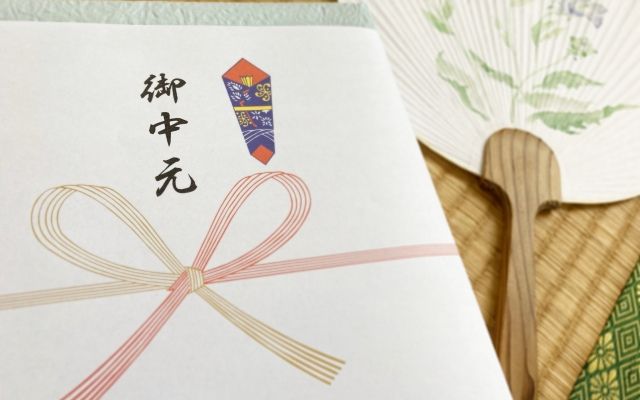 御中元